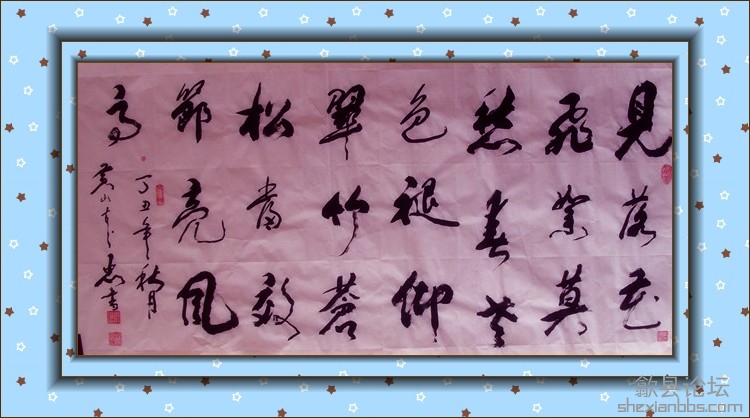 見落花
飛絮莫
愁春老
色褪仰
翠竹蒼
松當效
節亮風
高
丁丑年秋月
山 忠書
歙县论坛
shexianbbs.com